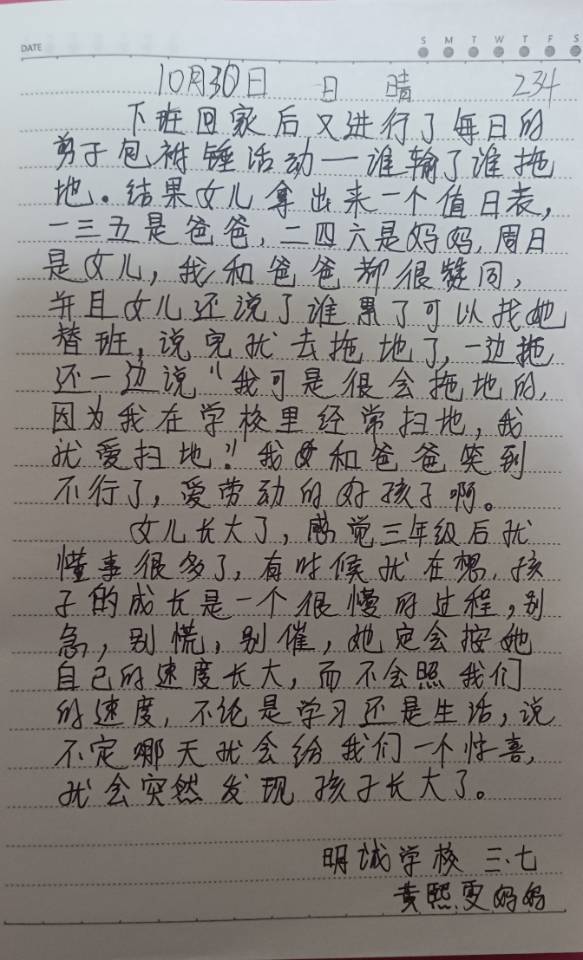 DATE
S M T W T F S
10月30日 日 晴 234
下班回家后又进行了每日的
剪子包袱锤活动一谁输了谁拖
地。结果女儿拿出来一个值日表,
一三五是爸爸,二四六是妈妈,周日
是女儿,我和爸爸都很赞同,
并且女儿还说了谁累了可以找她
替班,说完就去拖地了,一边拖
还一边说“我可是很会拖地的,
因为我在学校里经常扫地,我
就爱扫地”!我和爸爸笑到
不行了,爱劳动的好孩子啊。
女儿长大了,感觉三年级后就
懂事很多了,有时候就在想,孩
子的成长是一个很慢的过程,别
急,别慌,别催,她定会按她
自己的速度长大,而不会照我们
的速度,不论是学习还是生活,说
不定哪天就会给我们一个惊喜,
就会突然发现孩子长大了。
明诚学校 三.七
黄熙雯妈妈